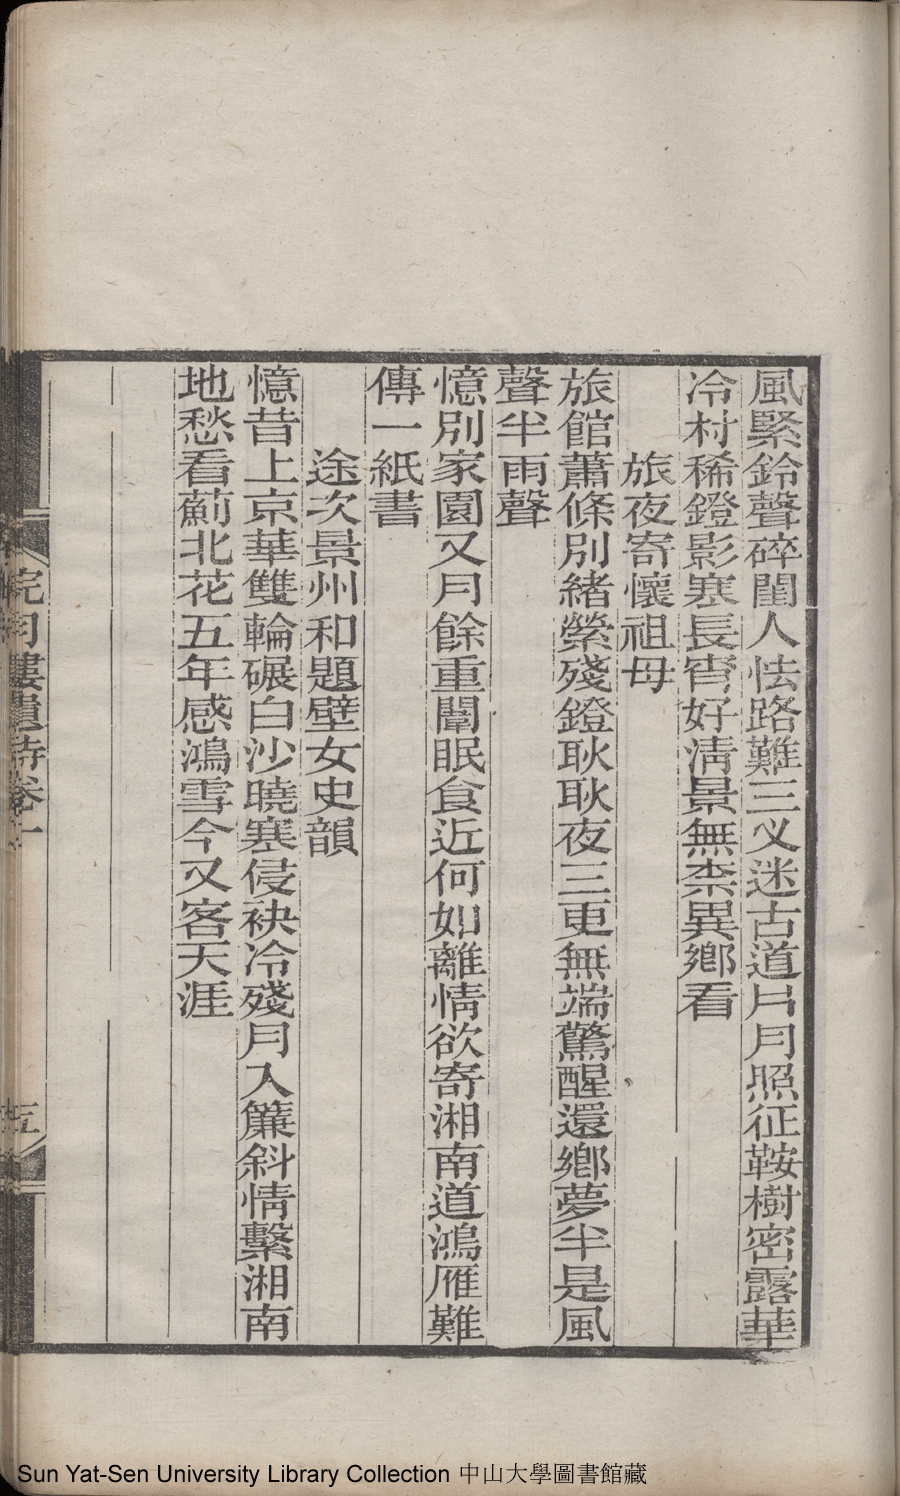 風緊鈴聲碎閨人怯路難三叉迷古道片月照征鞍樹密露華
冷村稀鐙影寒長宵好淸景無柰異鄉看
旅夜寄懷祖母
旅館蕭條別緒縈殘鐙耿耿夜三更無端驚醒還鄉夢半是風
聲半雨聲
憶別家園又月餘重闈眠食近何如離情欲寄湘南道鴻雁難
傳一紙書
途次景州和題壁女史韻
憶昔上京華雙輪碾白沙曉寒侵袂冷殘月入簾斜情繫湘南
地愁看薊北花五年感鴻雪今又客天涯
浣月樓遺詩卷一
五
Sun Yat-Sen University Library Collection 中山大學圖書館藏